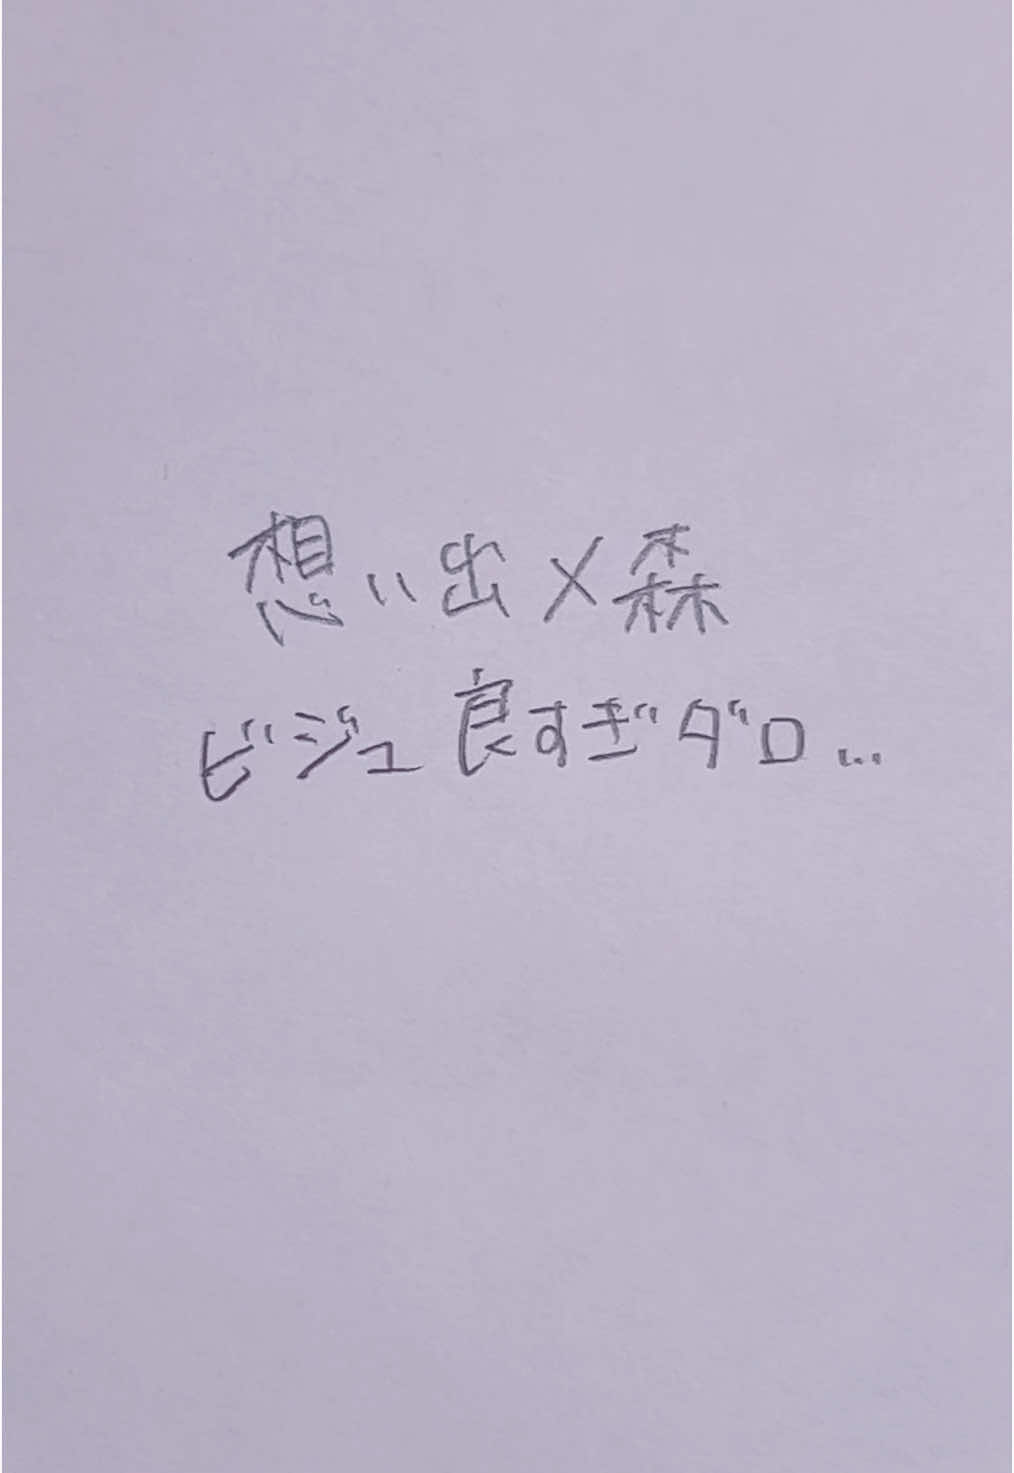 想い出×森
ビジュ良すぎダロ...